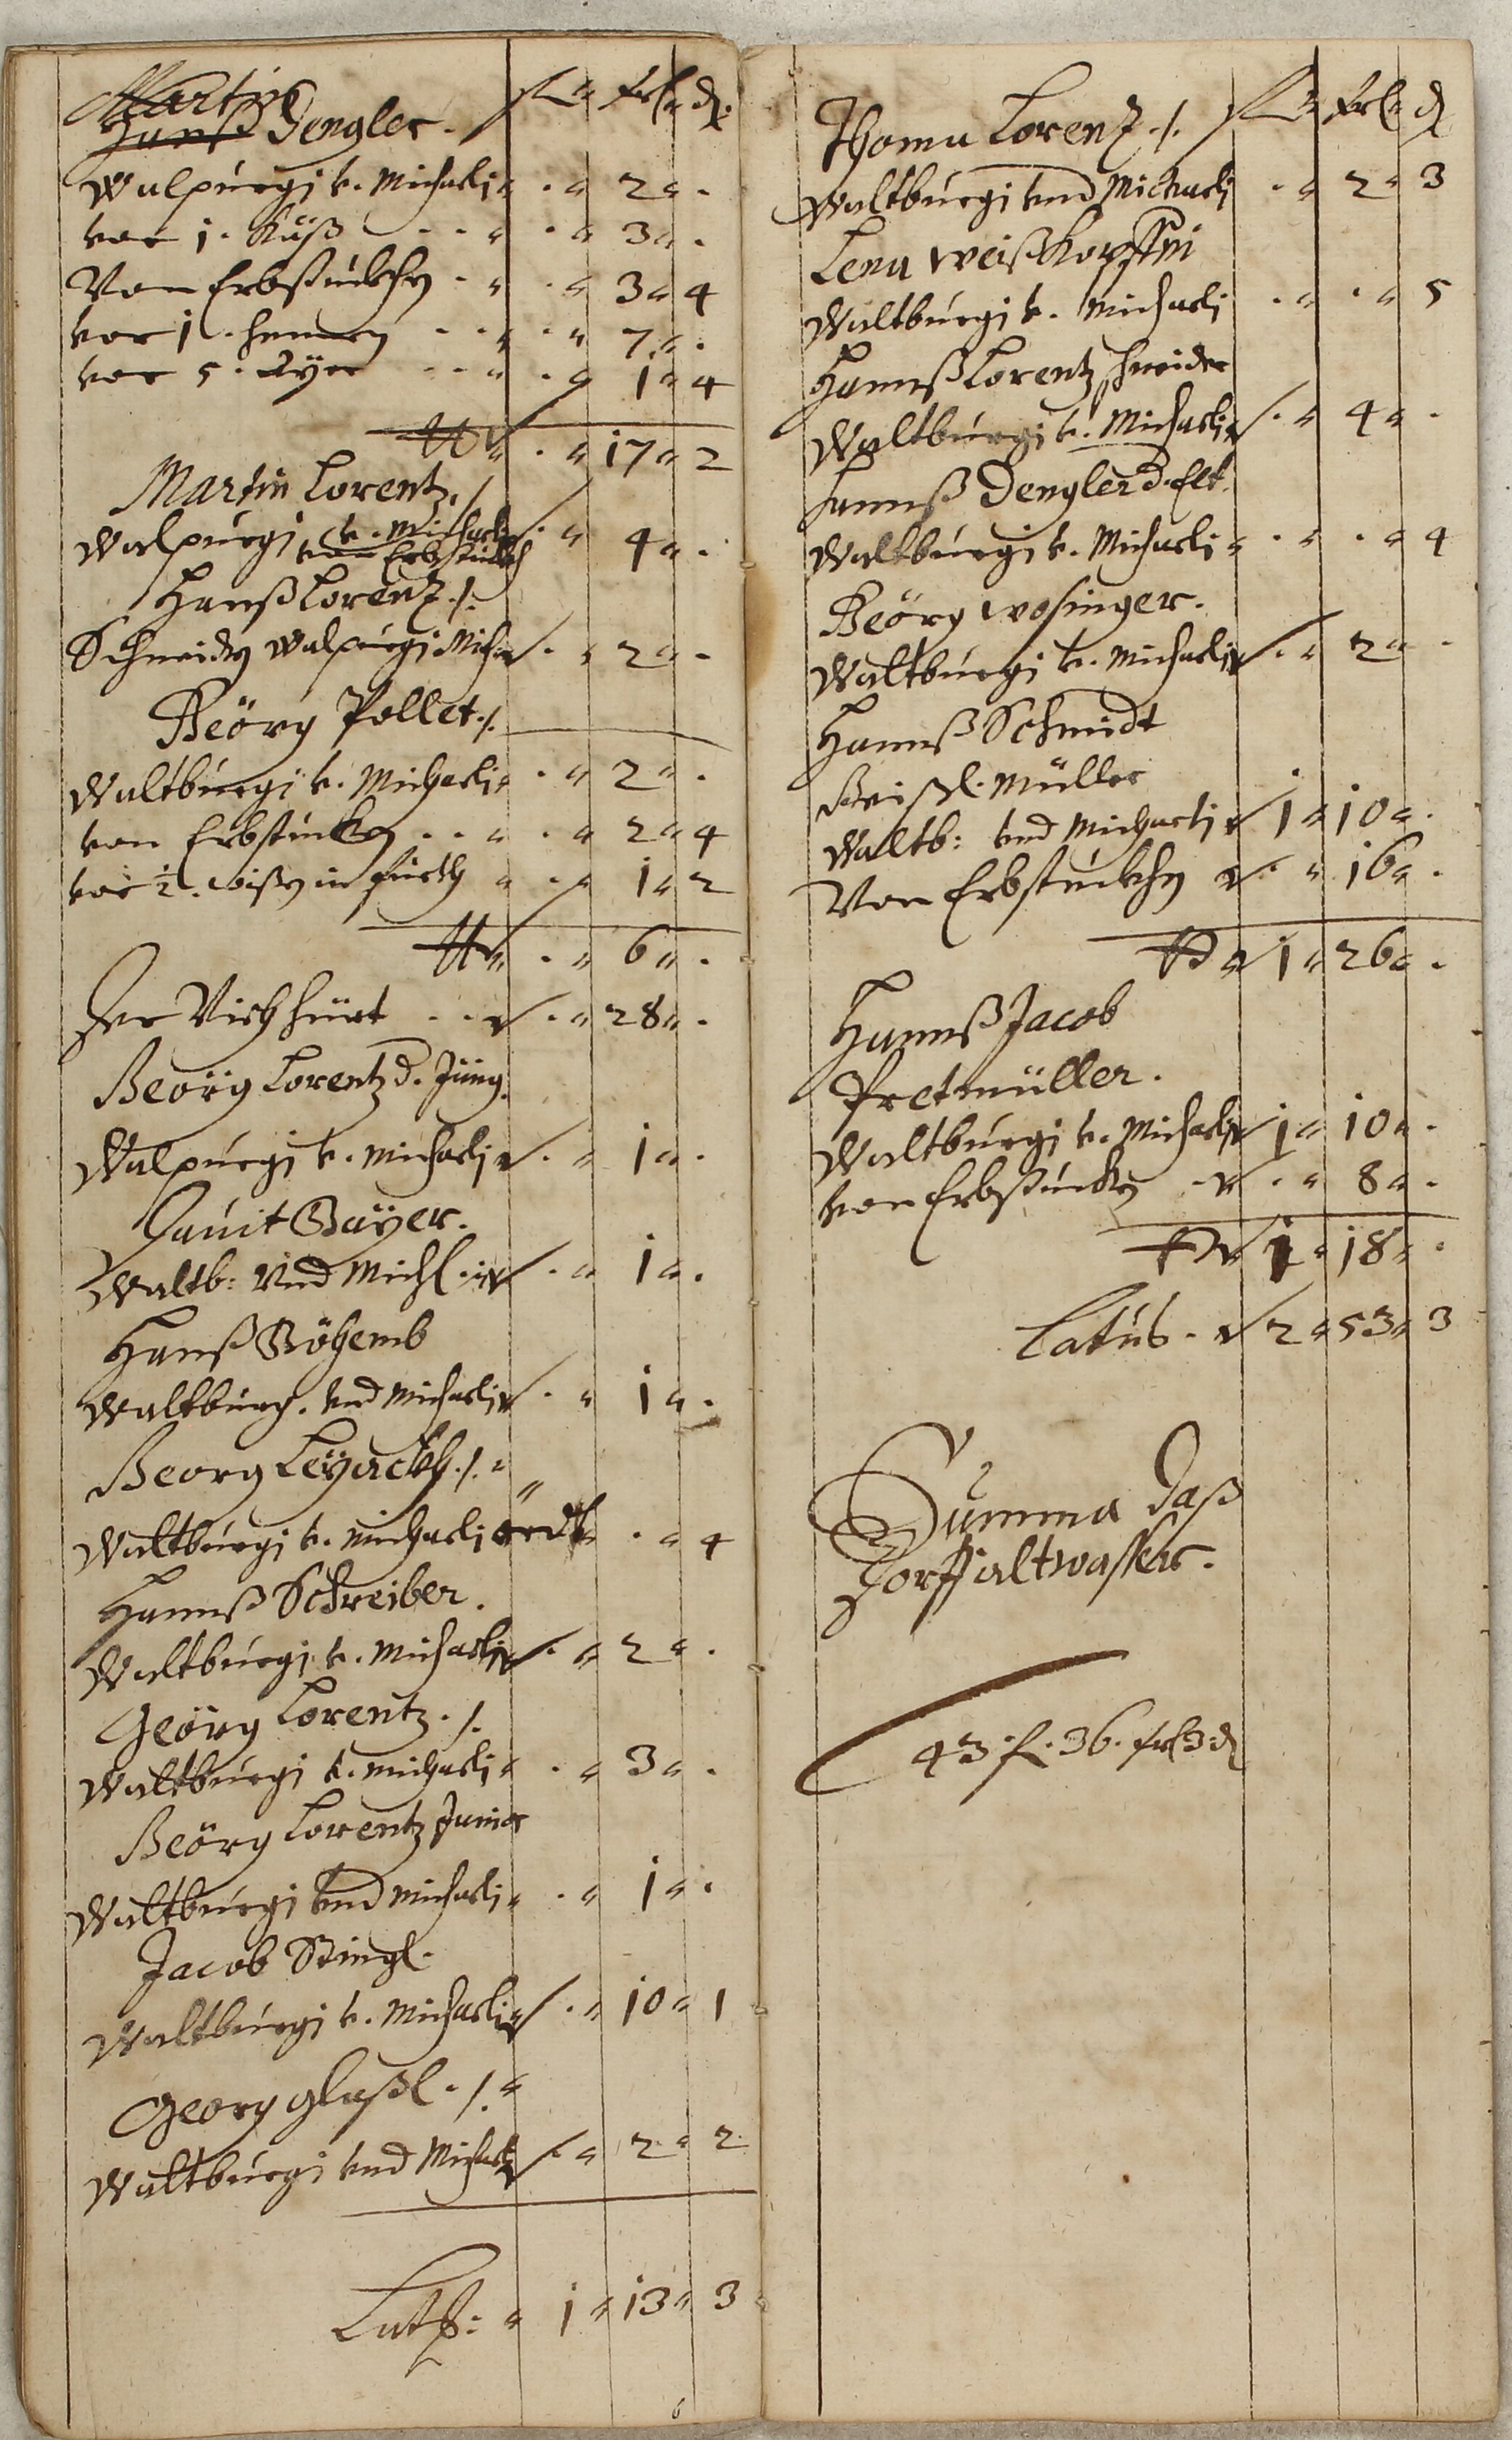 Martin
Hanß Dengler. fl " krl " d.
Walpurgi v. Michaeli " . " 2 " .
vor 1. Käß . . " . " 3 " .
Von Erbstuckhen . " . " 3 " 4
vor 1. hennen . . " . " 7 " .
vor 5. Ayer . . " . " 1 " 4
" . " 17 " 2
Martin Lorentz ./.
Walpurgi v. Michaeli . " 4 " .
vnd Erbstuckh
Hanß Lorenz ./.
Schneider Walpurgi Mich " . " 2 " .
Beörg Pollet ./.
Waltburgi v. Michaeli " . " 2 " .
von Erbstuckhen . . " . " 2 " 4
vor ½. wißen in fürth " . " 1 " 2
" . " 6 " .
Der Viehhürt . . " . " 28 " .
Beörg Lorentz d. Jüng.
Walpurgi v. Michaeli " . " 1 " .
Dauit Bayer.
Waltb: Vnd Michl. " . " 1 " .
Hanß Böhemb
Waltburg. vnd Michaeli " . " 1 " .
Beorg Leyackh ./. "
Waltburgi v. Michaeli . " 4
Hannß Schreiber.
Waltburgi v. Michaeli " . " 2 " .
Geörg Lorentz ./.
Waltburgi v. Michaeli " . " 3 " .
Beörg Lorentz Junior
Waltburgi vnd Michaeli " . " 1 " .
Jacob Stingl.
Waltburgi v. Michaeli " . " 10 " 1
Georg glaßl ./. "
Waltburgi vnd Michaeli . " 2 " 2
Latß: " 1 " 13 " 3
Thoma Lorenz ./. fl " krl " d
Waltburgi vnd Michaeli . " 2 " 3
Lena Weißkopffin
Waltburgi v. Michaeli . " . " 5
Hannß Lorentz schneider
Waltburgi v. Michaeli " . " 4 " .
Hannß Dengler d. Elt.
Waltburgi v. Michaeli " . " . " 4
Beörg wosinger.
Waltburgi v. Michaeli " . " 2 " .
Hannß Schmidt
Müller
Waltb: vnd Michaeli " 1 " 10 " .
Von Erbstuckhen " . " 16 " .
" 1 " 26 " .
Hannß Jacob
Pretmüller.
Waltburgi v. Michaeli " 1 " 10 " .
von Erbstuckhen . " . " 8 " .
" 1 " 18 " .
Latus . " 2 " 53 " 3
Summa daß
Dorff altwasser.
43. fl. 36. krl 3. d